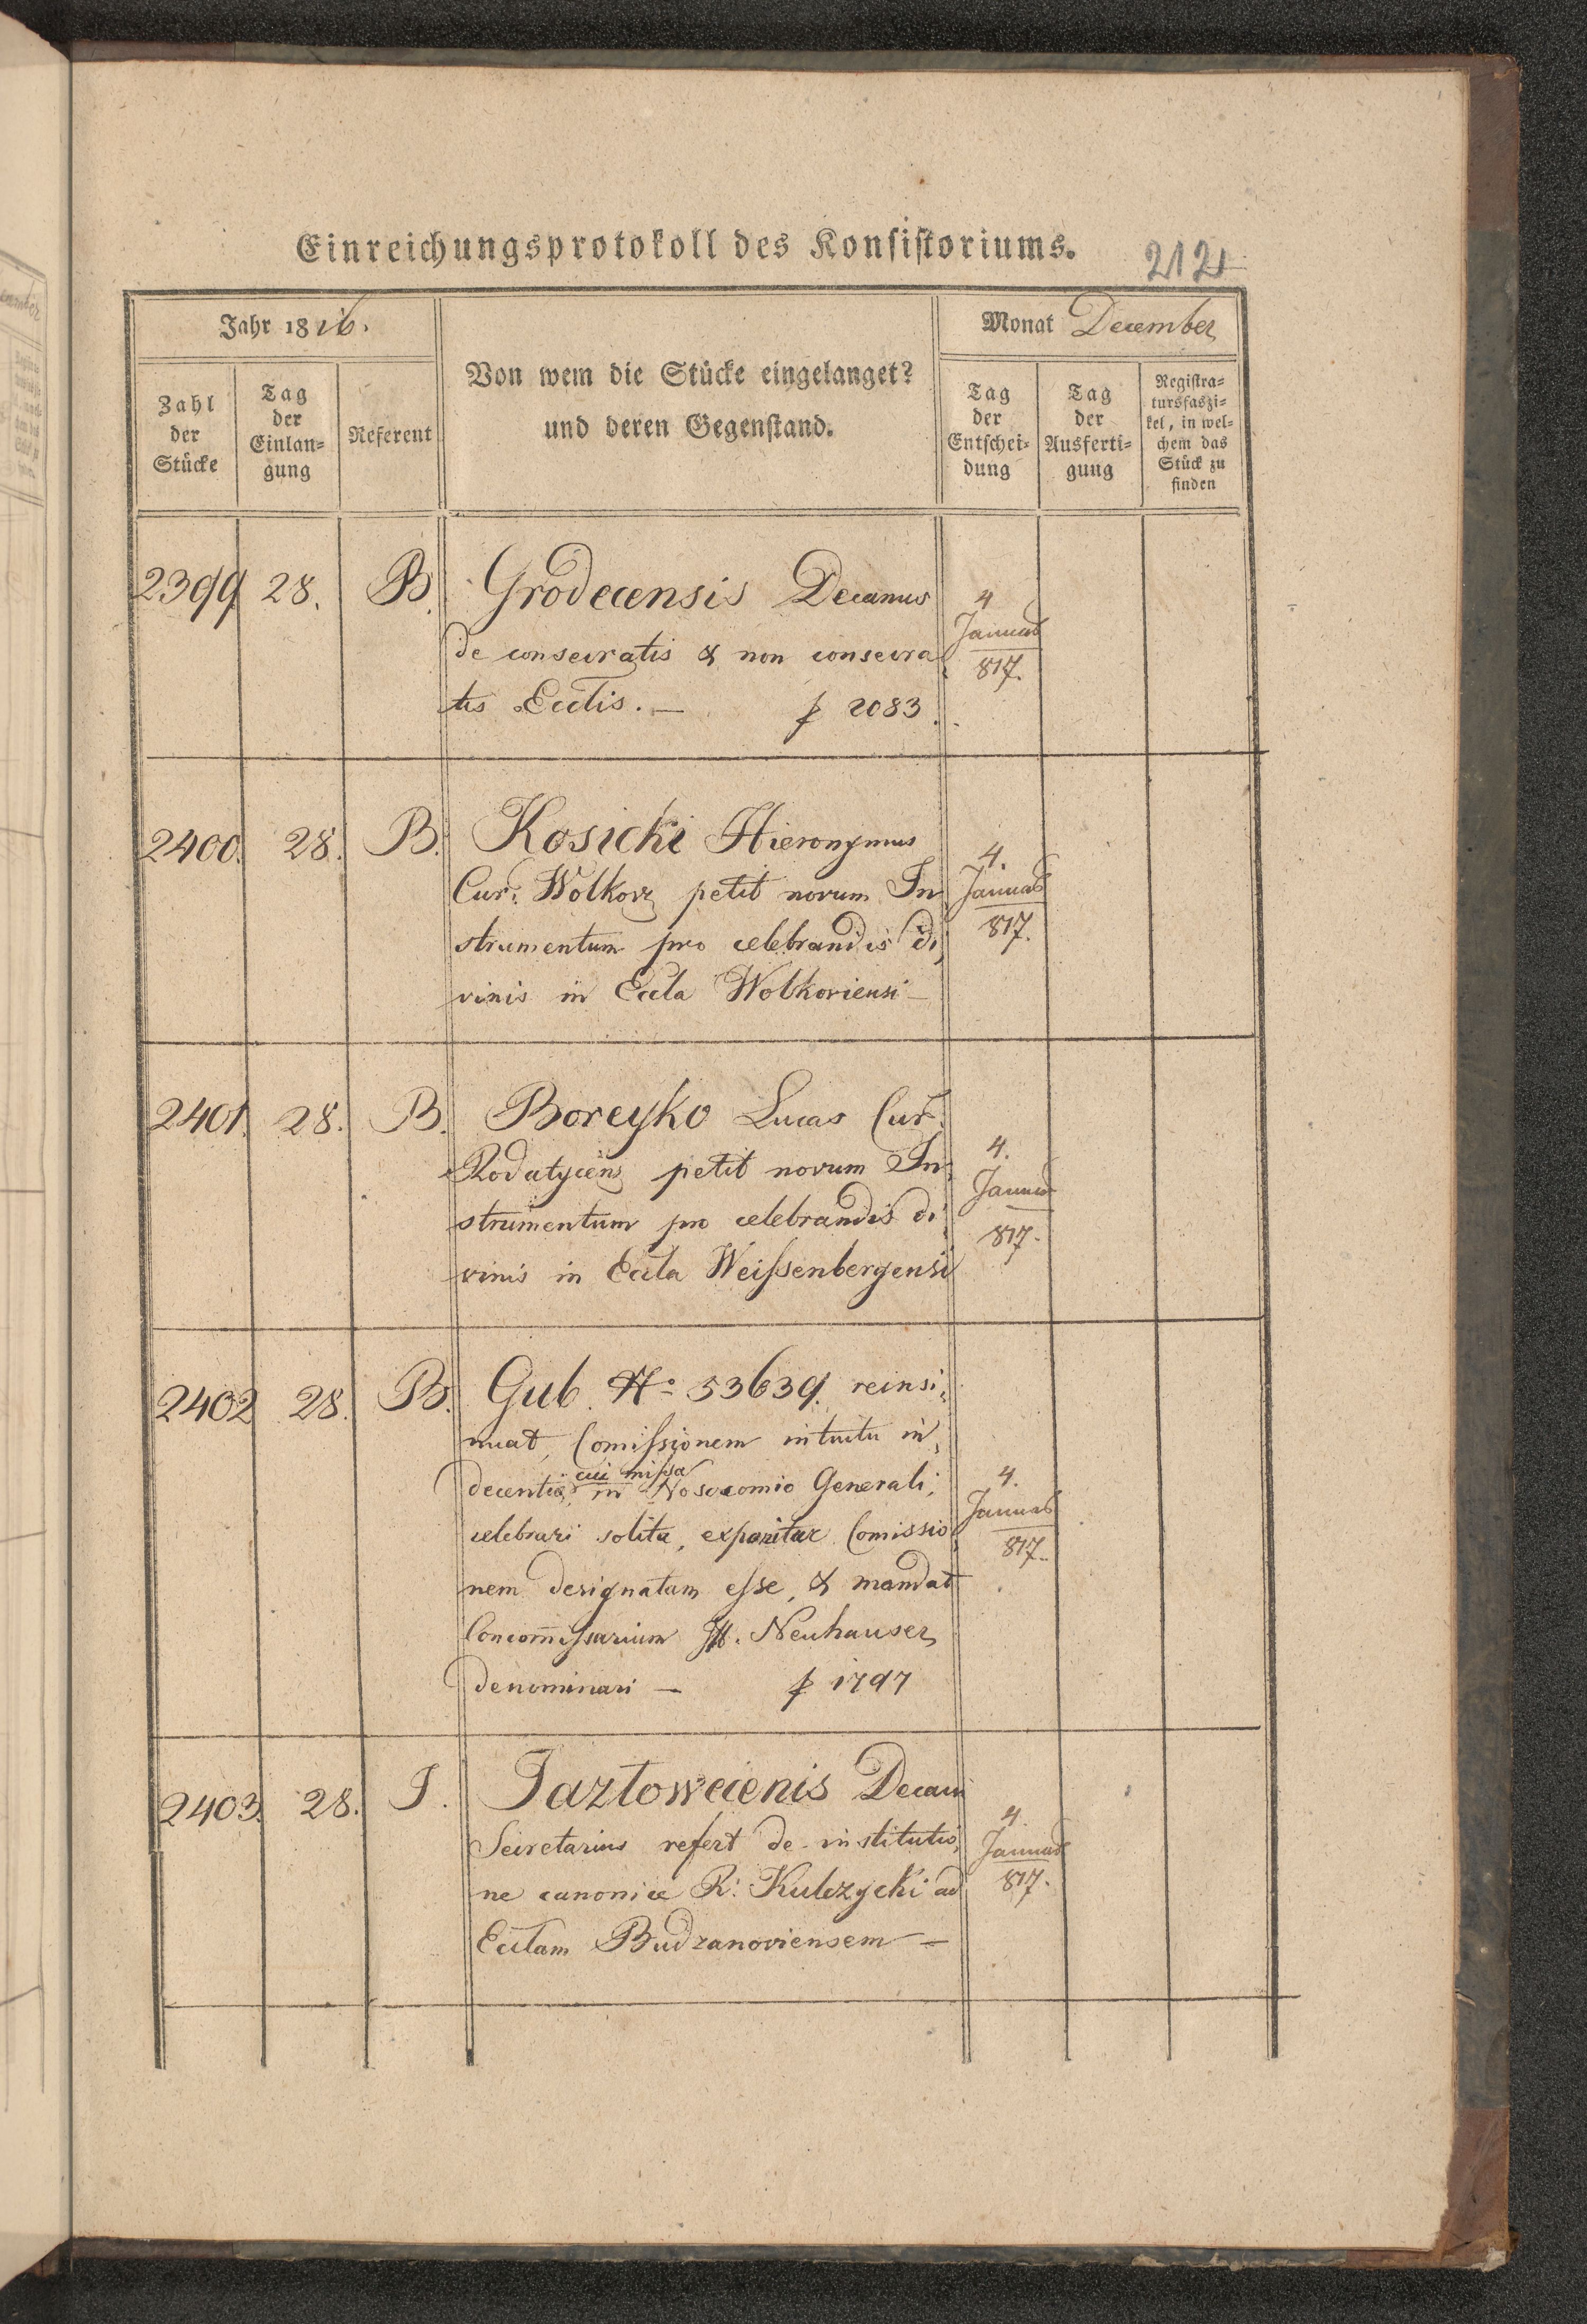 Einreichungsprotokoll des Konsistoriums.
212
Jahr 1816.
Monat December
Zahl der Stücke
Tag der Einlan=gung
Referent
Von wem die Stücke eingelanget?
und deren Gegenstand.
Tag der Entschei=dung
Tag der Ausferti=gung
Registra=tursfaszi=kel, in wel=chem das Stück zu finden
2399 28. B. Grodecensis Decanus
de consecratis & non consecra
tis Ecctis. — p 2083.
4 Januar 817.
2400. 28. B. Kosicki Hieronymus
Cur. Wolkov petit novum In
strumentum pro celebrandis di,
vinis in Eccla Wolkoviensi —
4. Januar 817.
2401. 28. B. Boreyko Lucas Cur.
Rodatycens petit novum In,
strumentum pro celebrandis di,
vinis in Eccla Weissenbergensi
4. Januar 817.
2402 28. B. Gub. No 53639. reinsi,
nuat, Comissionem intuitu in,
decentia, cui missa in Nosocomio Generali,
celebrari solita, exponitur Comissio,
nem designatam esse, & mandat
Concom̄issarium Neuhauser
denominari — p 1797
4. Januar 817.
2403. 28. J. Jazlowecenis Decani
Secretarius refert de institutio,
ne canonica R. Kulczycki ad
Ecclam Budzanoviensem —
4. Januar 817.